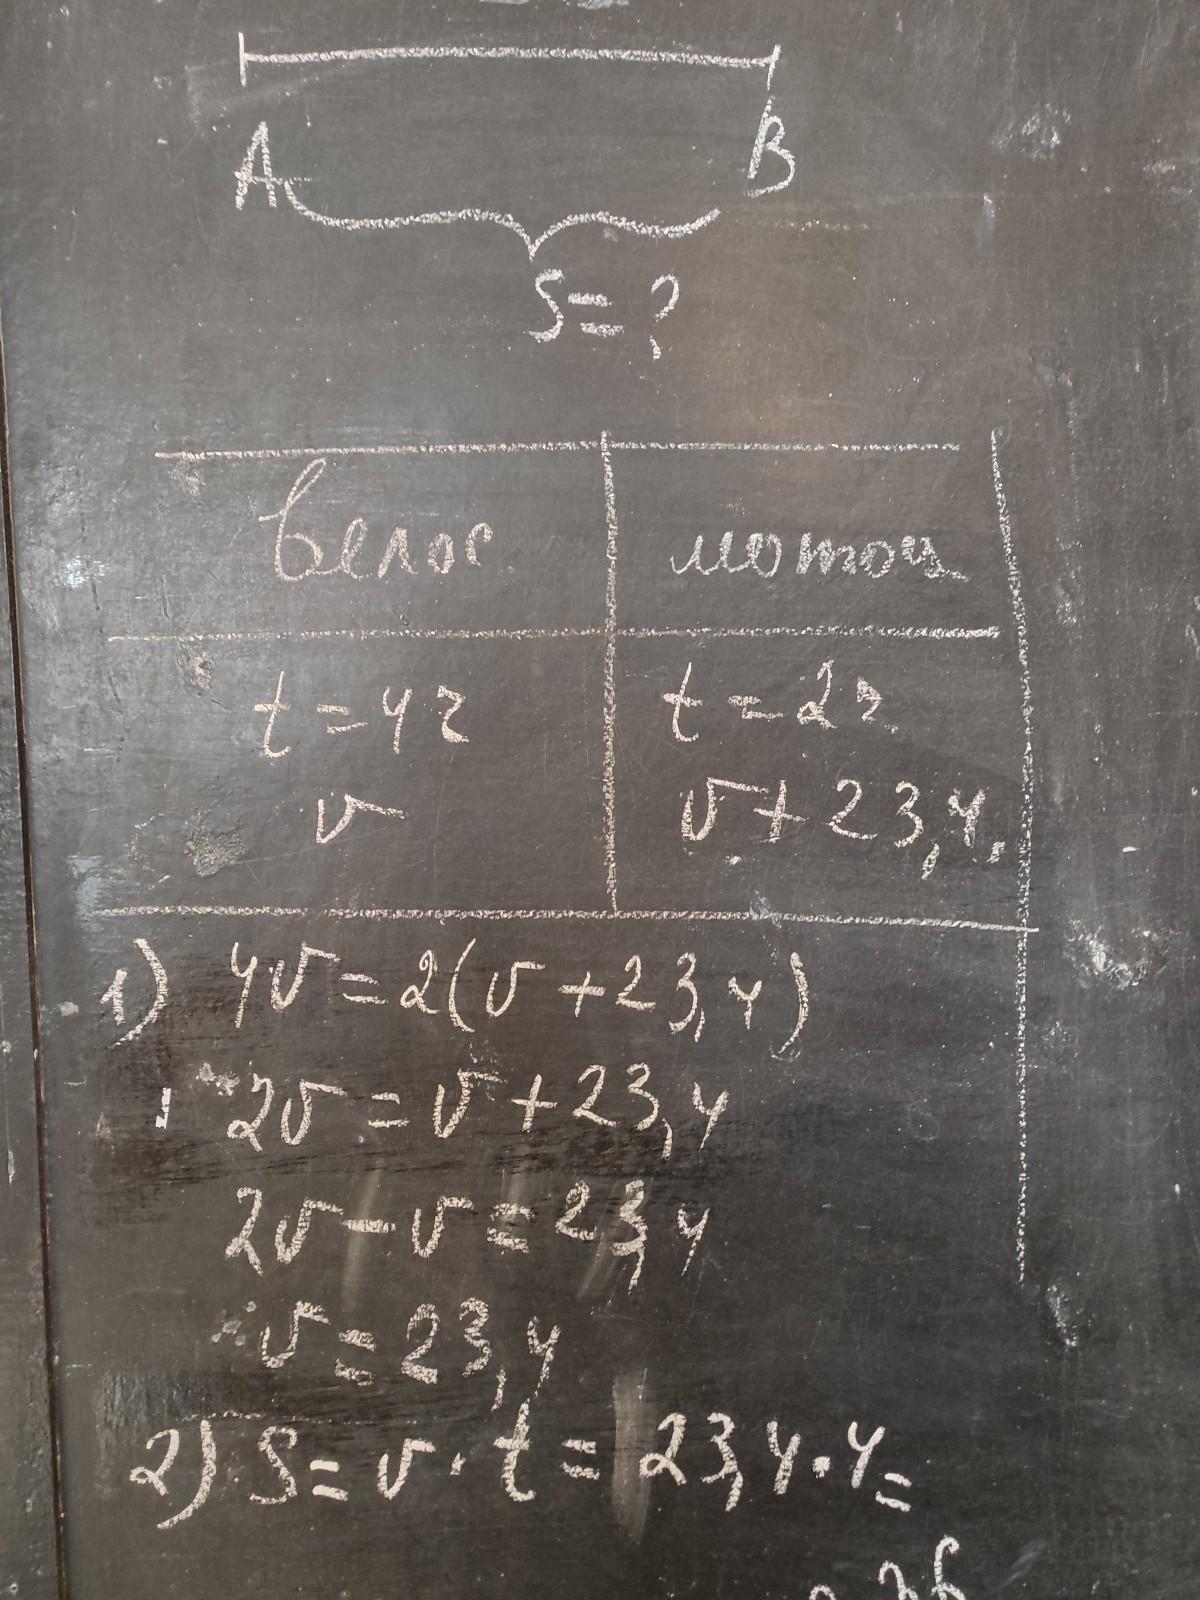 A B
S = ?
велос мотоц
t = 4г t = 2г
v v + 23,4.
1) 4v = 2(v + 23,4)
2v = v + 23,4
2v - v = 23,4
v = 23,4
2) S = v · t = 23,4 · 4 =